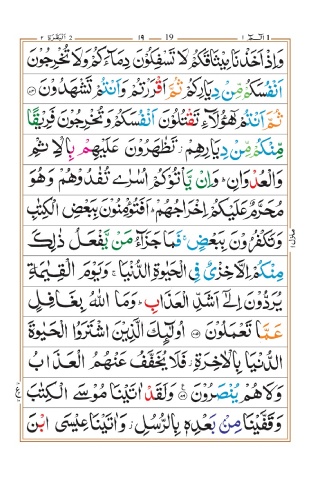 البقرة ٢ ١٩ 19 الٓمّٓ ١
وَاِذۡ اَخَذۡنَا مِيۡثَاقَكُمۡ لَا تَسۡفِكُوۡنَ دِمَآءَكُمۡ وَلَا تُخۡرِجُوۡنَ
اَنۡفُسَكُمۡ مِّنۡ دِيَارِكُمۡ ثُمَّ اَقۡرَرۡتُمۡ وَاَنۡتُمۡ تَشۡهَدُوۡنَ
ثُمَّ اَنۡتُمۡ هٰٓؤُلَآءِ تَقۡتُلُوۡنَ اَنۡفُسَكُمۡ وَتُخۡرِجُوۡنَ فَرِيۡقًا
مِّنۡكُمۡ مِّنۡ دِيَارِهِمۡ تَظٰهَرُوۡنَ عَلَيۡهِمۡ بِالۡاِثۡمِ
وَالۡعُدۡوَانِ وَاِنۡ يَّاۡتُوۡكُمۡ اُسٰرٰى تُفٰدُوۡهُمۡ وَهُوَ
مُحَرَّمٌ عَلَيۡكُمۡ اِخۡرَاجُهُمۡ اَفَتُؤۡمِنُوۡنَ بِبَعۡضِ الۡكِتٰبِ
وَتَكۡفُرُوۡنَ بِبَعۡضٍ فَمَا جَزَآءُ مَنۡ يَّفۡعَلُ ذٰلِكَ
مِنۡكُمۡ اِلَّا خِزۡىٌ فِى الۡحَيٰوةِ الدُّنۡيَا وَيَوۡمَ الۡقِيٰمَةِ
يُرَدُّوۡنَ اِلٰٓى اَشَدِّ الۡعَذَابِ وَمَا اللّٰهُ بِغَافِلٍ
عَمَّا تَعۡمَلُوۡنَ اُولٰٓٮِٕكَ الَّذِيۡنَ اشۡتَرَوُا الۡحَيٰوةَ
الدُّنۡيَا بِالۡاٰخِرَةِ فَلَا يُخَفَّفُ عَنۡهُمُ الۡعَذَابُ
وَلَا هُمۡ يُنۡصَرُوۡنَ وَلَقَدۡ اٰتَيۡنَا مُوۡسَى الۡكِتٰبَ
وَقَفَّيۡنَا مِنۡۢ بَعۡدِهٖ بِالرُّسُلِ وَاٰتَيۡنَا عِيۡسَى ابۡنَ